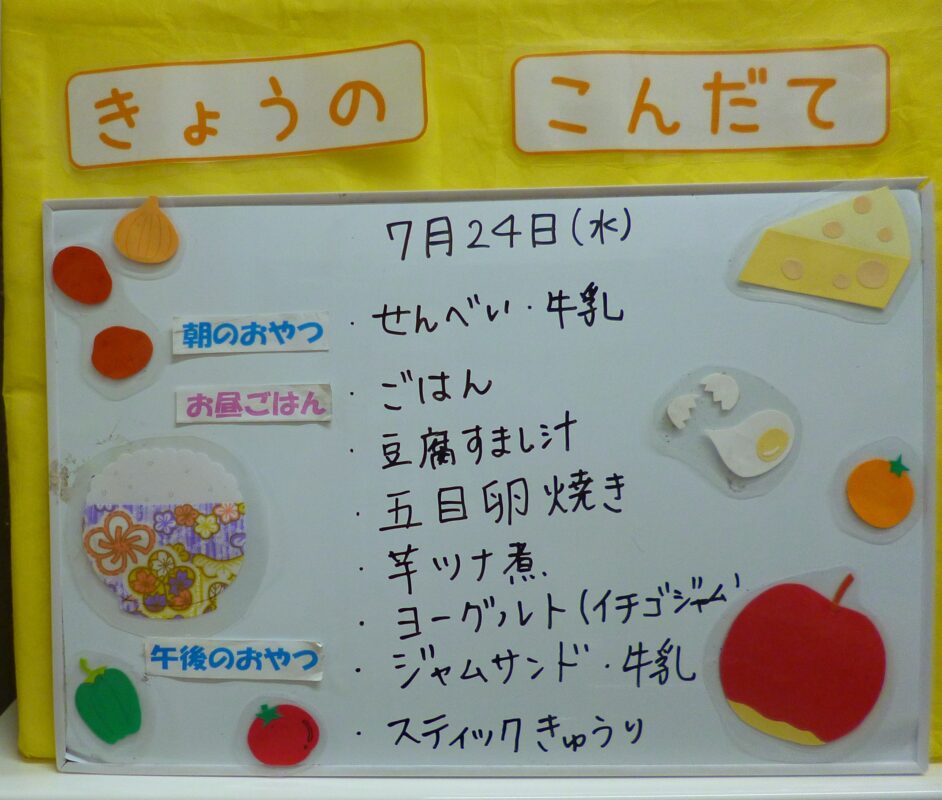 きょうの こんだて
7月24日(水)
朝のおやつ ・せんべい・牛乳
お昼ごはん ・ごはん
・豆腐すまし汁
・五目卵焼き
・芋ツナ煮
・ヨーグルト(イチゴジャム)
午後のおやつ ・ジャムサンド・牛乳
・スティックきゅうり